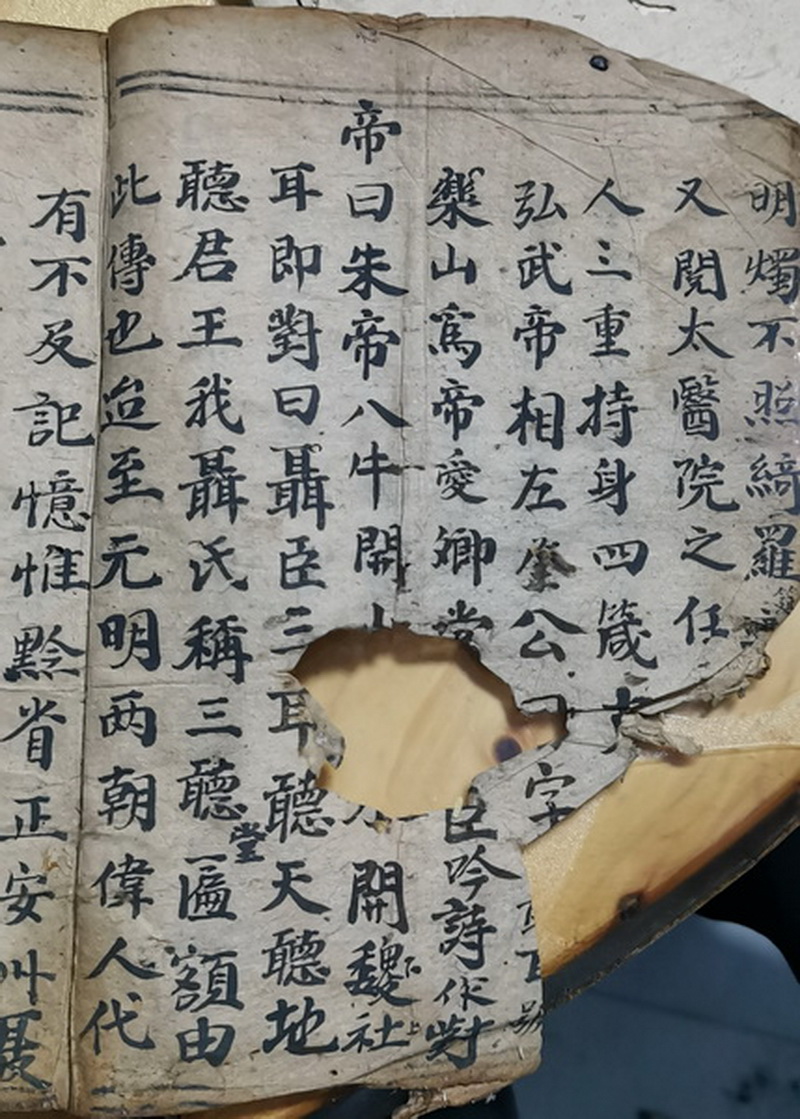 明燭不照綺羅
又閱太醫院之任
人三重持身四箴
弘武帝相左公字
樂山爲帝愛卿堂臣吟詩作對
帝曰朱帝八牛開開魏社
耳即對曰聶臣三耳聽天聽地
聽君王我聶氏稱三聽堂匾額由
此傳也迨至元明两朝偉人代
有不及記憶惟黔省正安州聶